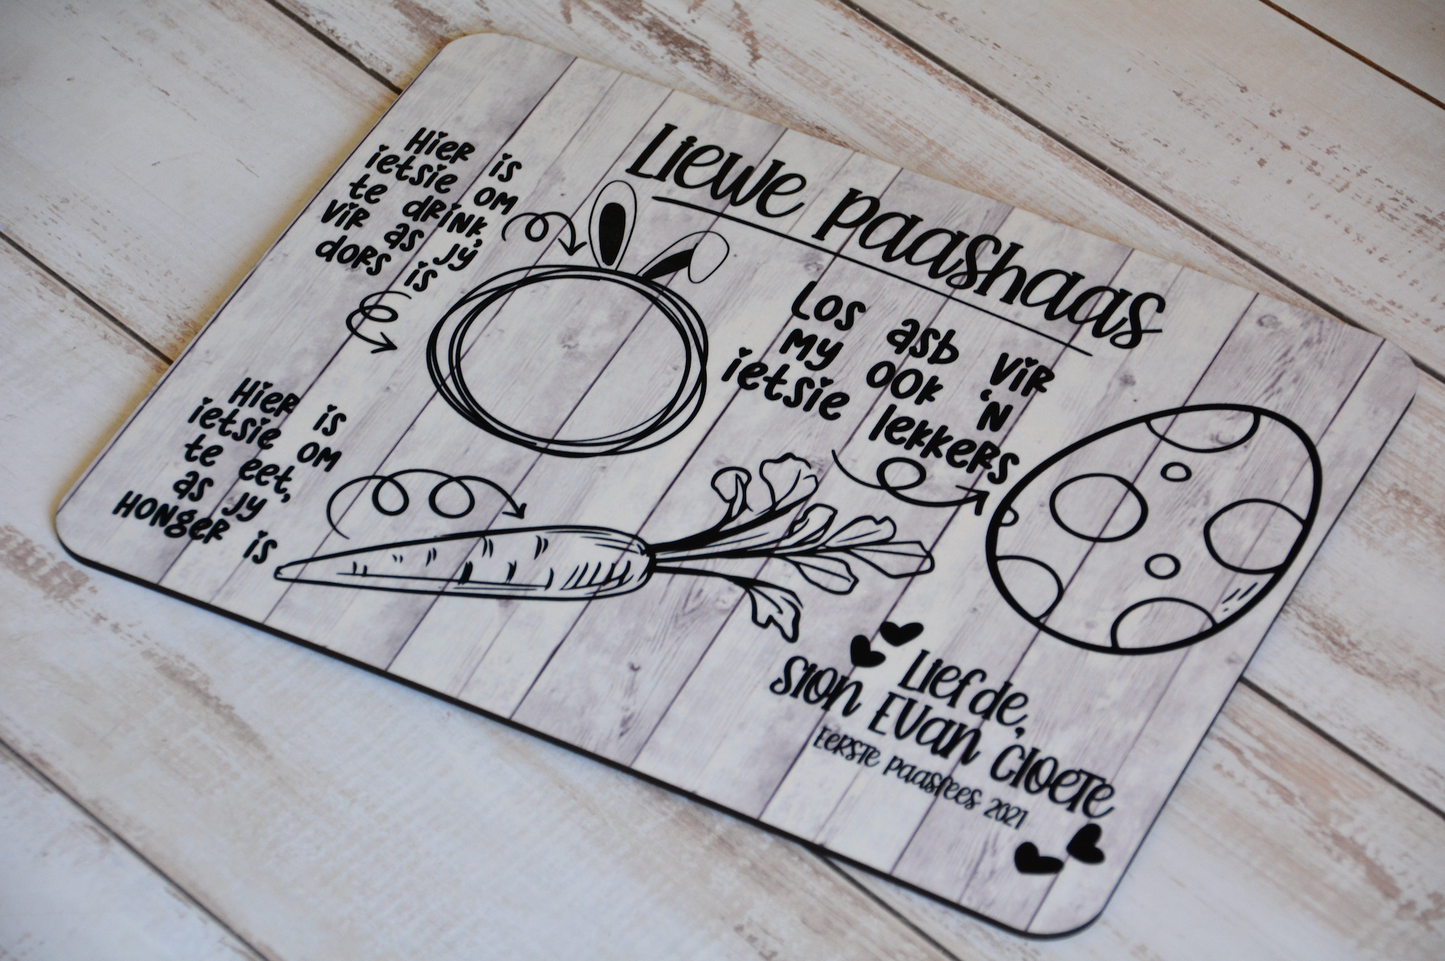 Liewe paashaas
Hier is
ietsie om
te drink,
vir as jy
dors is
Los asb vir
my ook 'n
ietsie lekkers
Hier is
ietsie om
te eet,
as jy
honger is
Liefde,
Sion Evan Cloete
Eerste Paasfees 2021